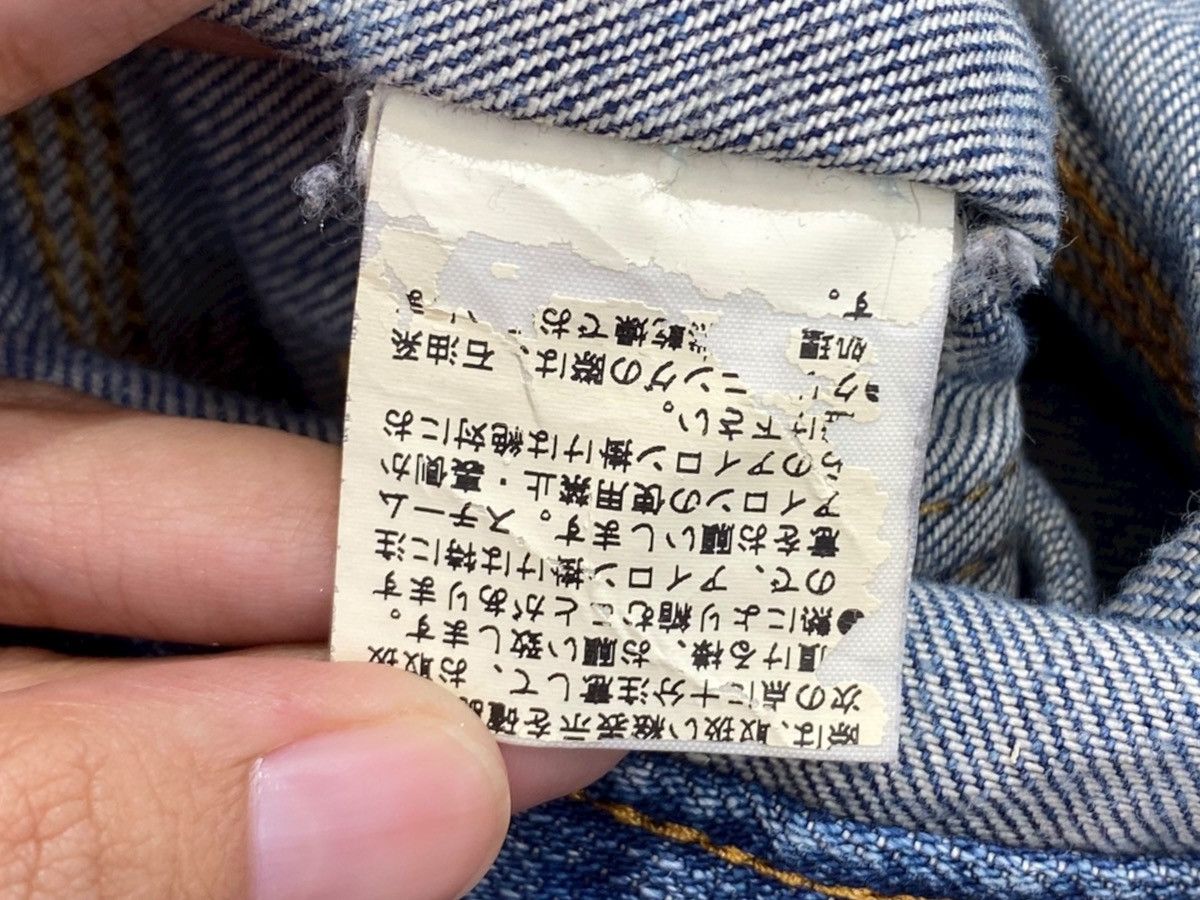 際は、取扱い絵表示を確
次の点に十分注意して、お取扱
頂ける様、お願い致します。
●熱により縮むことがあります
ので、アイロン掛けは特に注
意をお願いします。スチーム
アイロンの使用禁止・裏側か
らのアイロン掛けは絶対にお
け下さい。
ク ニングの際は、石油系
処理 乾燥でお
す。